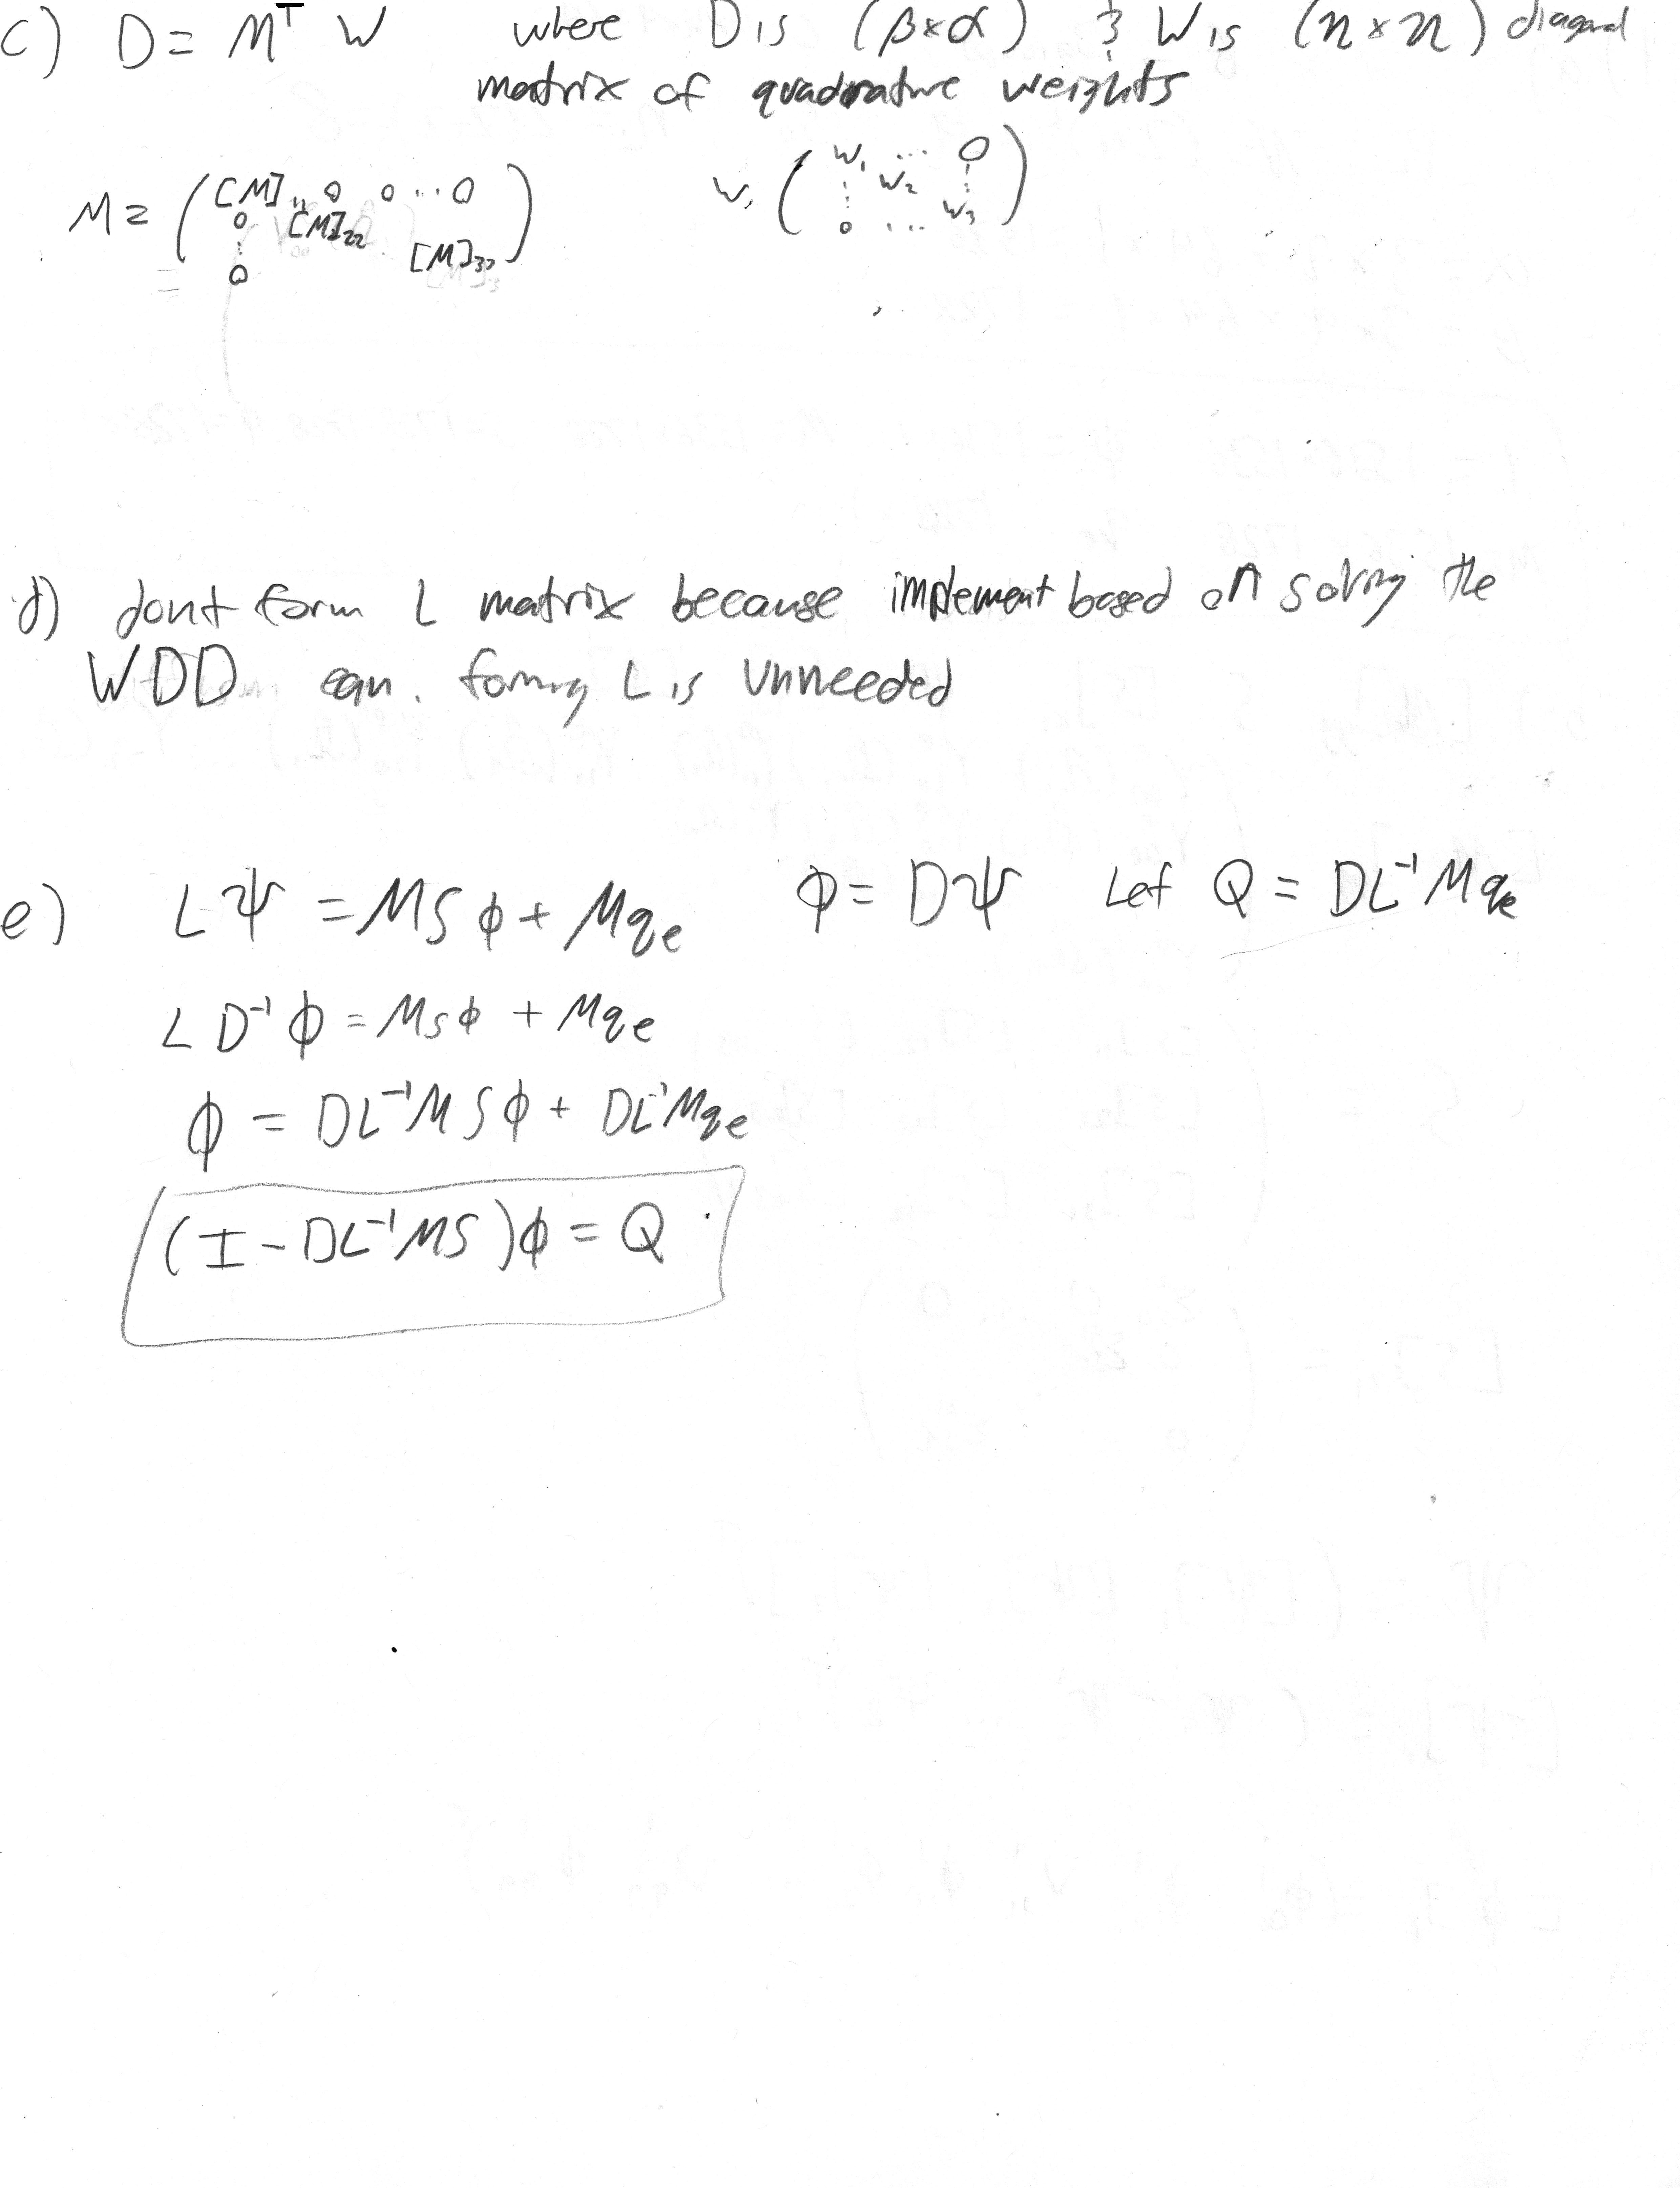 c) D = Mᵀ W where D is (β×α) & W is (n×n) diagonal
matrix of quadrature weights
M = ( [M]₁₁ 0 0 ... 0 ) W, ( W₁ ... 0 )
0 [M]₂₂ : W₂ :
: [M]₃₃ 0 ... W₃
0
d) dont form L matrix because implement based on solving the
WDD eqn. forming L is unneeded
e) Lψ = MSϕ + Mqₑ ϕ = Dψ Let Q = DL⁻¹Mqₑ
LD⁻¹ϕ = MSϕ + Mqₑ
ϕ = DL⁻¹MSϕ + DL⁻¹Mqₑ
(I - DL⁻¹MS)ϕ = Q